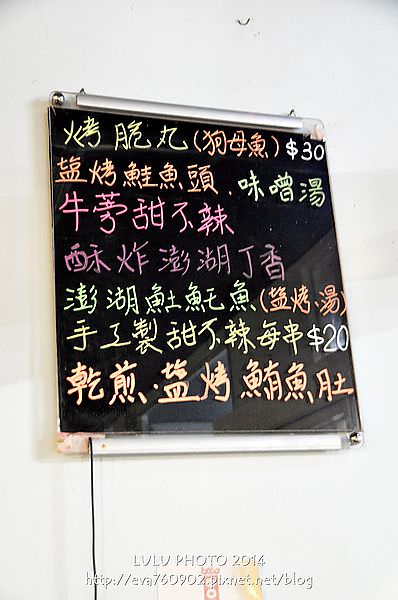 烤脆丸(狗母魚)$30
鹽烤鮭魚頭.味噌湯
牛蒡甜不辣
酥炸澎湖丁香
澎湖魠魚(鹽烤.湯)
手工製甜不辣每串$20
乾煎.鹽烤鮪魚肚
LULU PHOTO 2014
http://eva760902.pixnet.net/blog